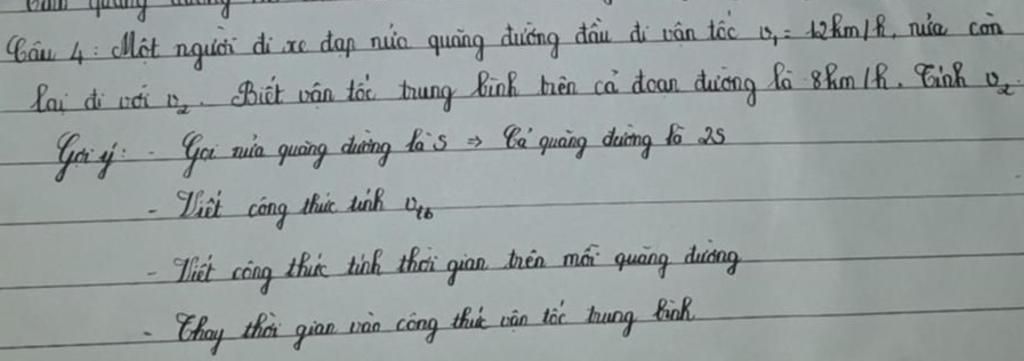 Câu 4: Một người đi xe đạp nửa quãng đường đầu đi vận tốc v₁ = 12km/h, nửa còn
lại đi với v₂. Biết vận tốc trung bình trên cả đoạn đường là 8km/h. Tính v₂.
Gợi ý: - Gọi nửa quãng đường là S ⇒ Cả quãng đường là 2S
- Viết công thức tính vₜb
- Viết công thức tính thời gian trên mỗi quãng đường
- Thay thời gian vào công thức vận tốc trung bình